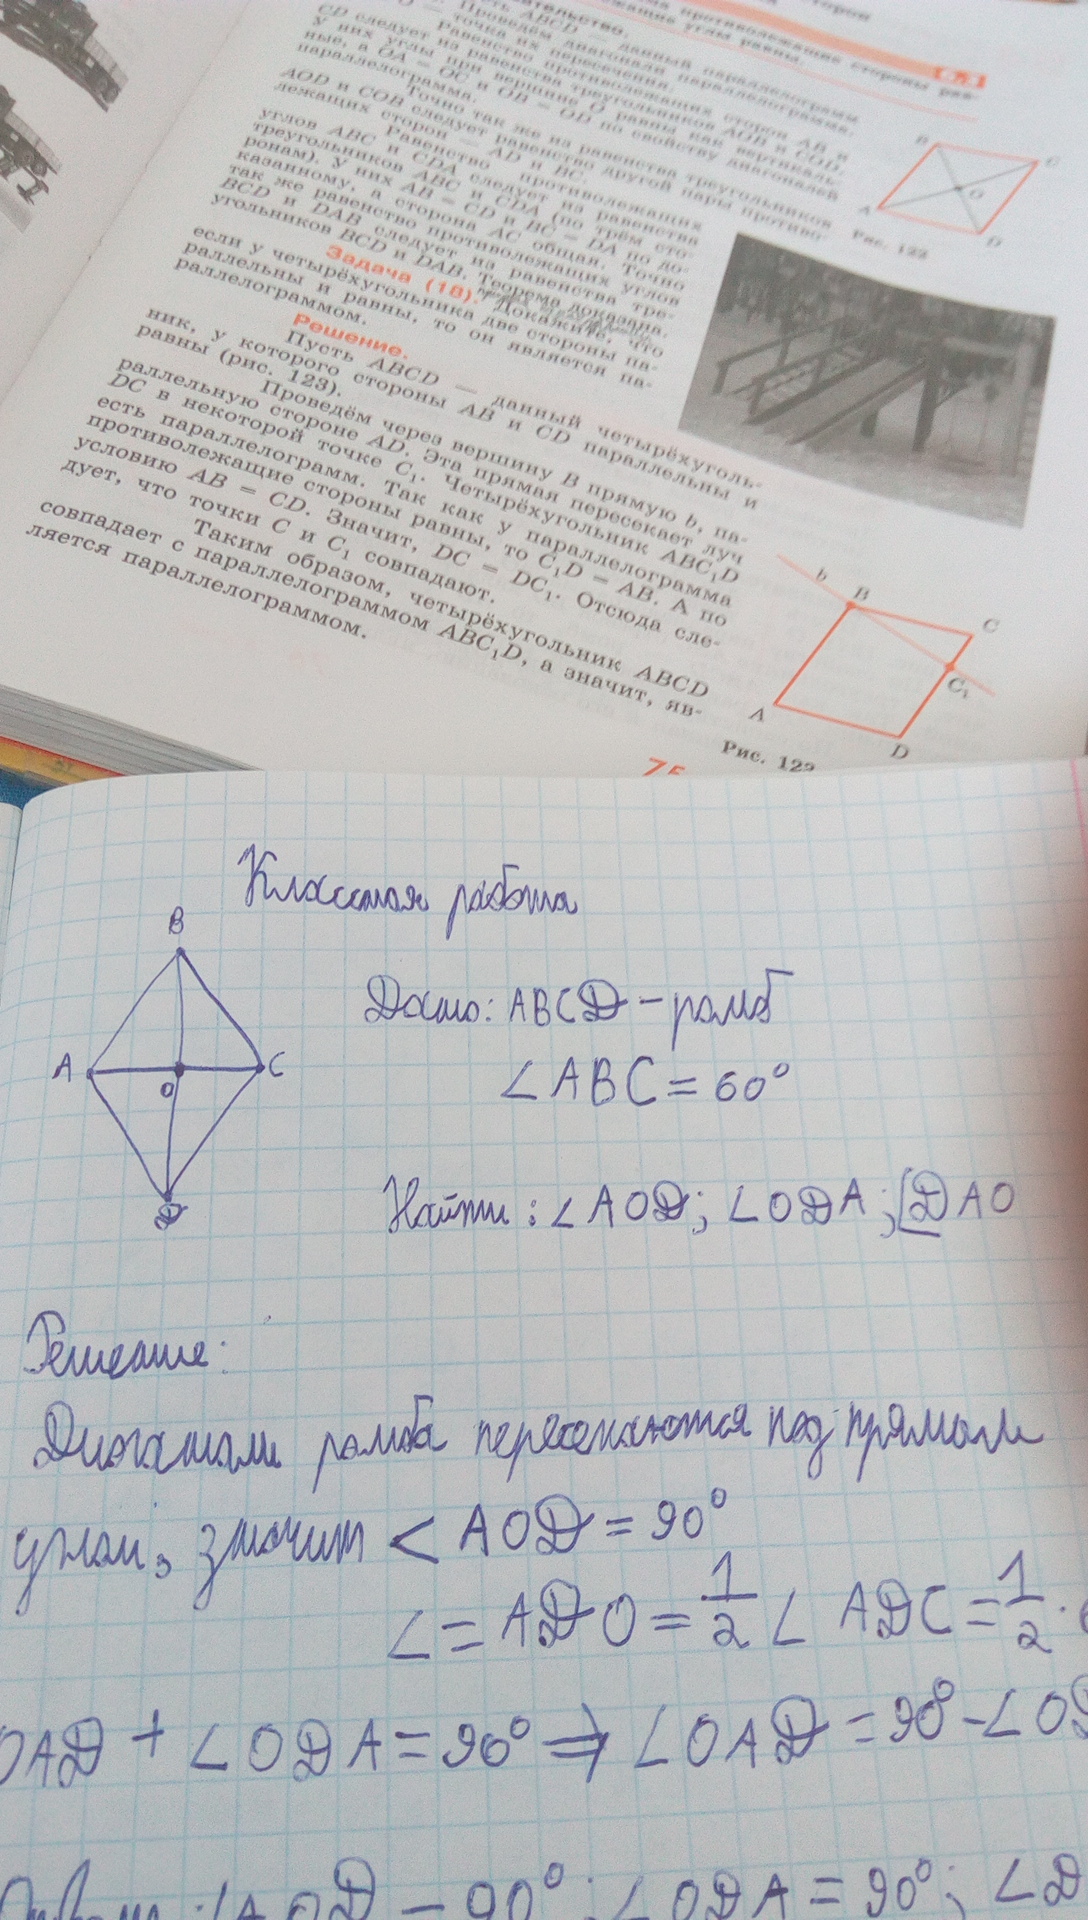 противолежащие стороны рав-
жащие углы равны.
CD следует из равенства треугольников AOB и COD.
У них углы при вершине O равны как вертикаль-
ные, а OA = OC и OB = OD по свойству диагоналей
параллелограмма.
Точно так же из равенства треугольников
AOD и COB следует равенство другой пары противо-
лежащих сторон — AD и BC.
Равенство противолежащих
углов ABC и CDA следует из равенства
треугольников ABC и CDA (по трём сто-
ронам). У них AB = CD и BC = DA по до-
казанному, а сторона AC общая. Точно
так же равенство противолежащих углов
BCD и DAB следует из равенства тре-
угольников BCD и DAB. Теорема доказана.
Задача (18). Докажите, что
если у четырёхугольника две стороны па-
раллельны и равны, то он является па-
раллелограммом.
Решение.
Пусть ABCD — данный четырёхуголь-
ник, у которого стороны AB и CD параллельны и
равны (рис. 123).
Проведём через вершину B прямую b, па-
раллельную стороне AD. Эта прямая пересекает луч
DC в некоторой точке C₁. Четырёхугольник ABC₁D
есть параллелограмм. Так как у параллелограмма
противолежащие стороны равны, то C₁D = AB. А по
условию AB = CD. Значит, DC = DC₁. Отсюда сле-
дует, что точки C и C₁ совпадают.
Таким образом, четырёхугольник ABCD
совпадает с параллелограммом ABC₁D, а значит, яв-
ляется параллелограммом.
B
C
O
A
D
Рис. 122
b
B
C
C₁
A
D
Рис. 123
75
Классная работа
B
A
C
O
D
Дано: ABCD – ромб
∠ABC = 60°
Найти: ∠AOD; ∠ODA; [DAO
Решение:
Диагонали ромба пересекаются под прямым
углом, значит < AOD = 90°
∠ = ADO = 1/2 ∠ ADC = 1/2 ·
OAD + ∠ODA = 90° ⇒ ∠OAD = 90° – ∠OD
Ответ: ∠AOD – 90°; ∠ODA = 90°; ∠D